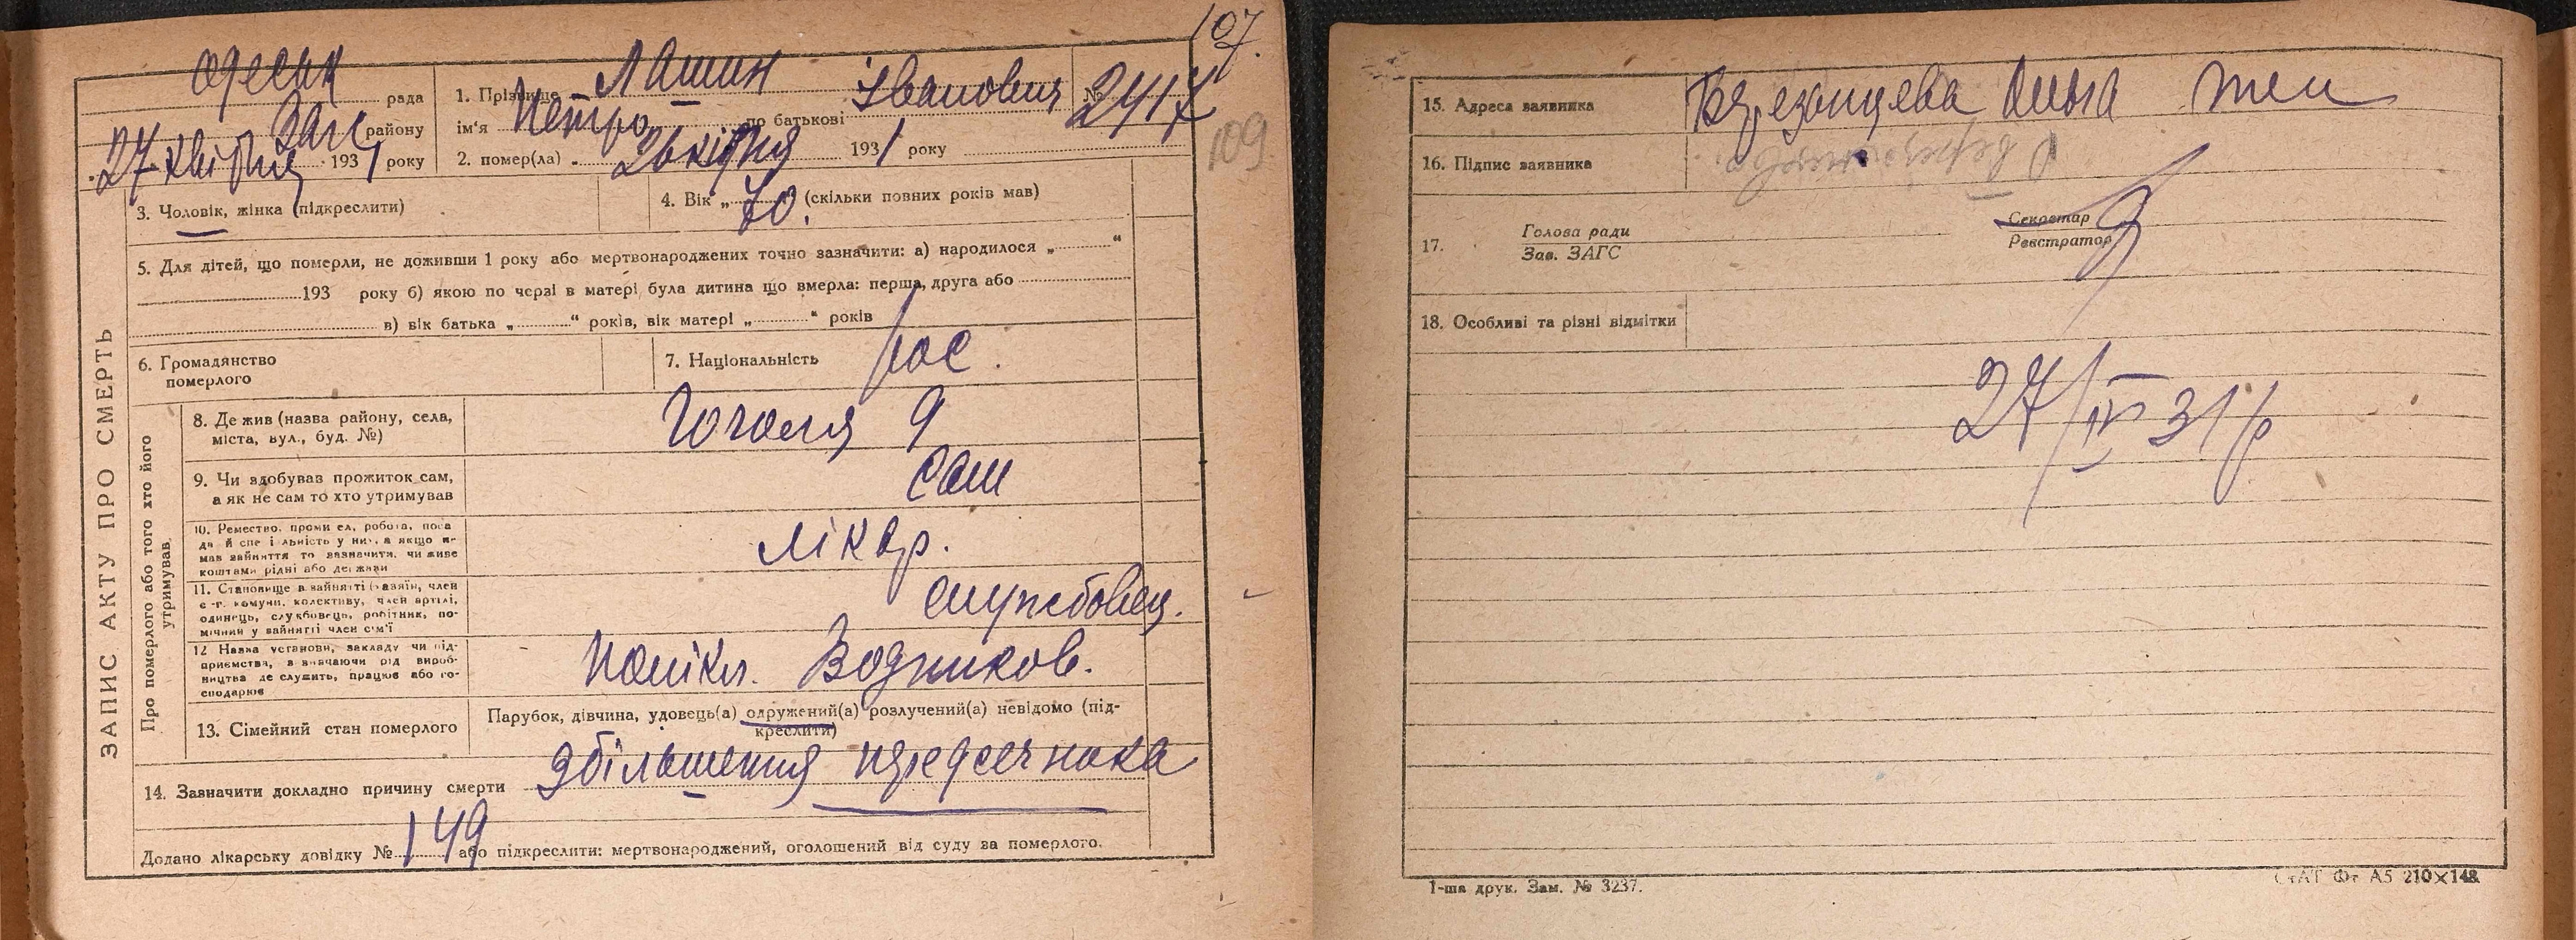 107.
109
Одеськ рада
Загс району
27 квітня 1931 року
1. Прізвище Лашин
ім'я Петро по батькові Іванович № 2417
2. помер(ла) „ 26 квітня 1931 року
3. Чоловік, жінка (підкреслити)
4. Вік „ 70. (скільки повних років мав)
5. Для дітей, що померли, не доживши 1 року або мертвонароджених точно зазначити: а) народилося „ “
193 року б) якою по черзі в матері була дитина що вмерла: перша, друга або
в) вік батька „ “ років, вік матері „ “ років
6. Громадянство
померлого
7. Національність рос.
ЗАПИС АКТУ ПРО СМЕРТЬ
Про померлого або того хто його
утримував
8. Де жив (назва району, села,
міста, вул., буд. №)
Гоголя 9
9. Чи здобував прожиток сам,
а як не сам то хто утримував
сам
10. Ремество, промисел, робота, поса
да й спеціальність у них, а якщо не
мав зайняття то зазначити, чи живе
коштами рідні або держави
лікар.
11. Становище в зайнятті (хазяїн, член
с.-г. комуни, колективу, член артілі,
одинець, службовець, робітник, по-
мічний у зайнятті член сім'ї
службовец.
12 Назва установи, закладу чи під-
приємства, зазначаючи рід вироб-
ництва де служить, працює або го-
сподарює
Полікл. Водников.
13. Сімейний стан померлого
Парубок, дівчина, удовець(а) одружений(а) розлучений(а) невідомо (під-
креслити)
14. Зазначити докладно причину смерти збільшення
Додано лікарську довідку № 149 або підкреслити: мертвонароджений, оголошений від суду за померлого.
15. Адреса заявника
16. Підпис заявника
17. Голова ради
Зав. ЗАГС
Секретар
Реєстратор
18. Особливі та різні відмітки
27/IV 31 р
1-ша друк. Зам. № 3237.
СтАТ Фт А5 210×148